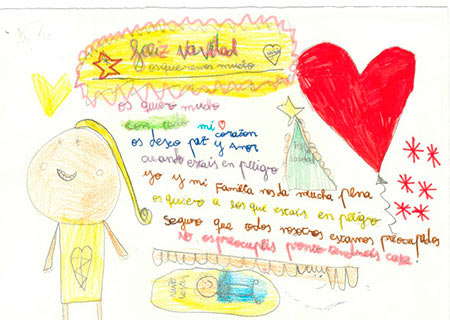 Feliz Navidad
os queremos mucho
os quiero mucho
con todo mi
corazon
os deseo paz y Amor
cuando estais en peligro
yo y mi Familia nos da mucha pena
os quiero a los que estais en peligro
seguro que todos nosotros estamos preocupados
No os preocupeis pronto tendreis casa